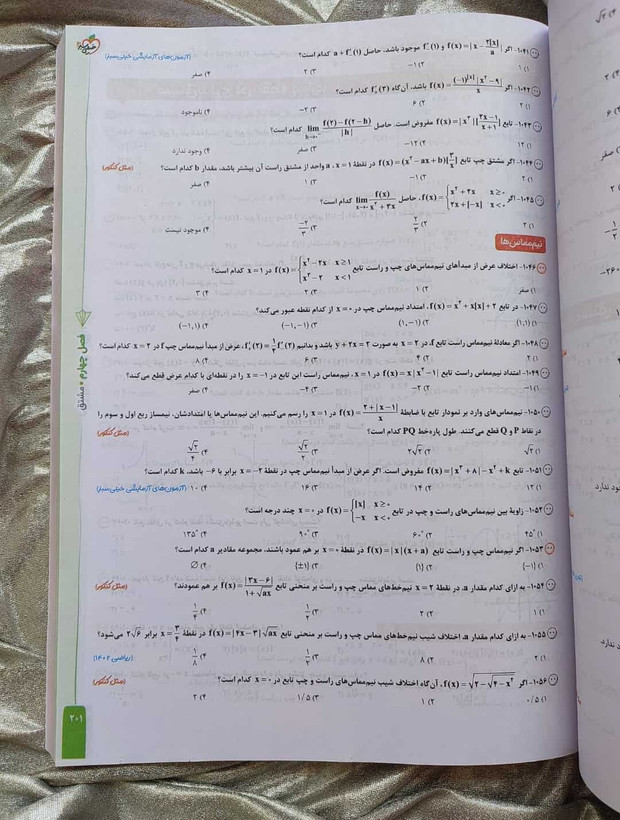 خیلی سبز
۱۰۴۱- اگر f(x) = |x - ۲[x]/a| و f'₋(۱) موجود باشد، حاصل a + f'₋(۱) کدام است؟ (آزمون‌های آزمایشی خیلی سبز)
۱) ۱ ۲) ۱- ۳) ۲ ۴) صفر
۱۰۴۲- اگر f(x) = (-۱)^[x] |x² - ۹| / x باشد، آن‌گاه کدام است؟
۲) ۶ ۳) ۲- ۴) ناموجود
۱۰۴۳- تابع مفروض است. حاصل lim h→۰ (f(۲) - f(۲ - h)) / |h| کدام است؟
۱) ۱۲ ۲) ۱۲- ۳) صفر ۴) وجود ندارد
۱۰۴۴- اگر مشتق چپ تابع f(x) = (x² - ax + b)[۳/x] در نقطهٔ x = ۱، a واحد از مشتق راست آن بیشتر باشد، مقدار b کدام است؟ (مثل کنکور)
۱) ۲ ۲) ۱- ۳) ۱ ۴) صفر
۱۰۴۵- اگر f(x) = { x² + ۲x x ≥ ۰ ; ۲x + [-x] x < ۰ ، حاصل کدام است؟
۱) ۲ ۲) ۲/۳ ۳) -۲/۳ ۴) موجود نیست
نیم‌مماس‌ها
۱۰۴۶- اختلاف عرض از مبدأهای نیم‌مماس‌های چپ و راست تابع f(x) = { x² - ۲x x ≥ ۱ ; x² - ۲ x < ۱ در x = ۱ کدام است؟
۱) صفر ۲) ۱ ۳) ۲ ۴) ۳
۱۰۴۷- در تابع f(x) = x² + x[x] + ۲، امتداد نیم‌مماس چپ در x = ۰ از کدام نقطه عبور می‌کند؟
۱) (۱,۱) ۲) (۱,-۱) ۳) (-۱,-۱) ۴) (-۱,۱)
۱۰۴۸- اگر معادلهٔ نیم‌مماس راست تابع f، در x = ۲ به صورت y + ۲x = ۲ باشد و بدانیم عرض از مبدأ نیم‌مماس چپ f در x = ۲ کدام است؟
۱) ۲ ۲) ۴ ۳) ۶ ۴) ۸
۱۰۴۹- امتداد نیم‌مماس راست تابع f(x) = x|x² - ۱| در x = ۱، نیم‌مماس راست این تابع در x = -۱ را در نقطه‌ای با کدام عرض قطع می‌کند؟
۱) ۱- ۲) ۲- ۳) ۴- ۴) صفر
۱۰۵۰- نیم‌مماس‌های وارد بر نمودار تابع با ضابطهٔ f(x) = (۲ + |x - ۱|)/x در x = ۱ را رسم می‌کنیم. این نیم‌مماس‌ها یا امتدادشان، نیمساز ربع اول و سوم را
در نقاط P و Q قطع می‌کنند. طول پاره‌خط PQ کدام است؟ (مثل کنکور)
۱) √۲ ۲) ۲√۲ ۳) √۲/۲ ۴) √۲/۴
۱۰۵۱- تابع f(x) = |x³ + ۸| - x² + k مفروض است. اگر عرض از مبدأ نیم‌مماس چپ در نقطهٔ x = -۲ برابر با ۶- باشد، k کدام است؟
۱) ۱۲ ۲) ۱۴ ۳) ۱۶ ۴) ۱۰ (آزمون‌های آزمایشی خیلی سبز)
۱۰۵۲- زاویهٔ بین نیم‌مماس‌های راست و چپ در تابع f(x) = { [x] x ≥ ۰ ; -x x < ۰ در x = ۰ چند درجه است؟
۱) ۴۵° ۲) ۶۰° ۳) ۹۰° ۴) ۱۳۵°
۱۰۵۳- اگر نیم‌مماس چپ و راست تابع f(x) = |x|(x + a) در نقطهٔ x = ۰ بر هم عمود باشند، مجموعه مقادیر a کدام است؟
۱) {-۱} ۲) {۱} ۳) {±۱} ۴) ∅
۱۰۵۴- به ازای کدام مقدار a، در نقطهٔ x = ۲ نیم‌خط‌های مماس چپ و راست بر منحنی تابع f(x) = |۳x - ۶| / (۱ + √ax) بر هم عمودند؟ (مثل کنکور)
۱) ۱ ۲) ۲ ۳) ۱/۲ ۴) ۱/۴
۱۰۵۵- به ازای کدام مقدار a، اختلاف شیب نیم‌خط‌های مماس چپ و راست بر منحنی تابع f(x) = |۴x - ۳|√ax در نقطهٔ x = ۳/۴ برابر ۲√۶ می‌شود؟
۱) ۲ ۲) ۸ ۳) ۱/۲ ۴) ۱/۸ (ریاضی ۱۴۰۲)
۱۰۵۶- اگر f(x) = √(۲ - √(۴ - x²))، آن‌گاه اختلاف شیب نیم‌مماس‌های راست و چپ تابع در x = ۰ کدام است؟ (مثل کنکور)
۱) ۰/۵ ۲) ۱ ۳) ۱/۵ ۴) ۲
فصل چهارم • مشتق
۲۰۱